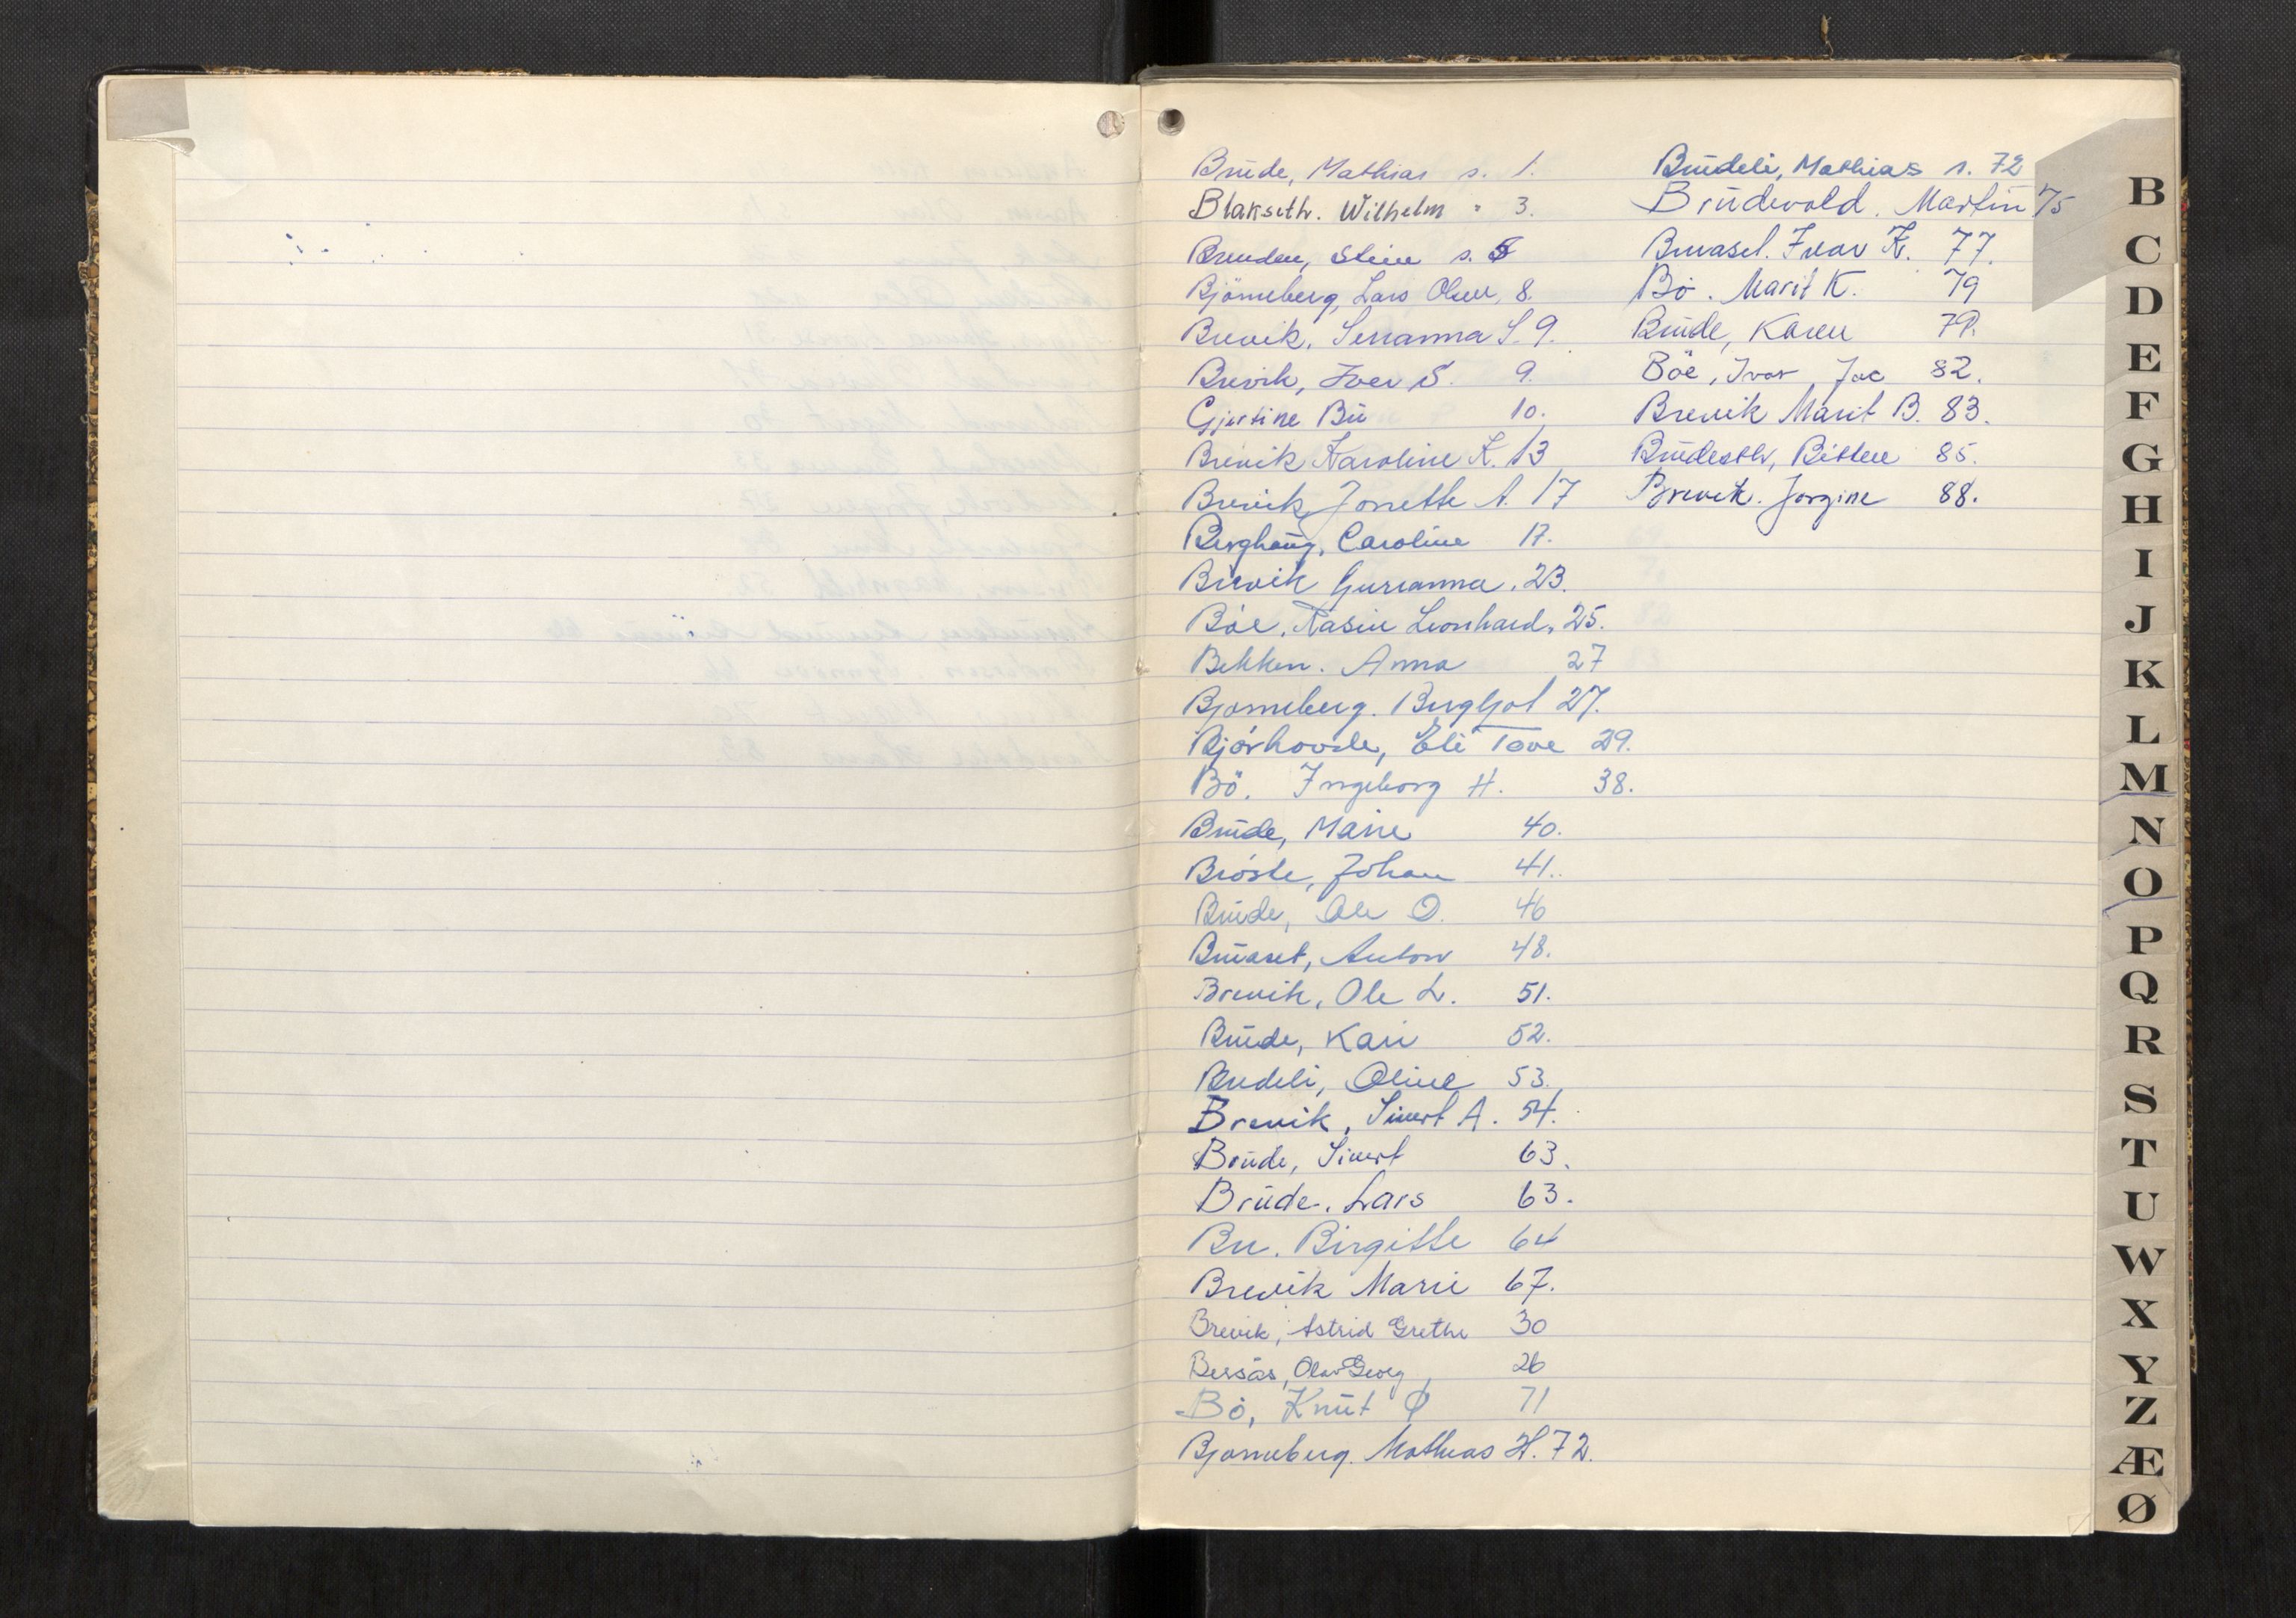 Brúde, Mathias s. 1.
Blakseth. Wilhelm " 3.
Bruuden, Stine s. 5
Björneberg, Lars Olsen, 8.
Brevik, Serianna S. 9.
Brevik, Iver S. 9.
Gjertine Bú 10.
Brevik Karoline K. 13
Brevik, Jonette A. 17
Berghaúg, Caroline 17.
Brevik Gurianna. 23.
Böe, Rasin Leonhard, 25.
Bekken. Anna 27
Bjorneberg. Bergljot 27.
Bjórhovde, Eli Tove 29.
Bö. Ingeborg H. 38.
Brúde, Marie 40.
Bröste, Johan 41.
Brúde, Ole O. 46
Brúaset, Anton 48.
Brevik, Ole L. 51.
Brúde, Kari 52.
Brudeli, Oline 53.
Brevik, Sivert A. 54.
Brúde, Sivert 63.
Brúde, Lars 63.
Bu. Birgitte 64
Brevik Marie 67.
Brevik, Astrid Grethe 30
Bersås, Olav Georg 26
Bó, Knút Ø 71
Bjorneberg. Mathias H. 72.
Brúdeli, Mathias s. 72
Brúdevold. Martin 75
Bruaset. Ivar K. 77.
Bö. Marit K. 79
Brúde, Karen 79.
Böe, Ivar Jac 82.
Brevik Marit B. 83.
Brúdeseth, Bitten 85.
Brevik. Jorgine 88.
B
C
D
E
F
G
H
I
J
K
L
M
N
O
P
Q
R
S
T
U
W
X
Y
Z
Æ
Ø